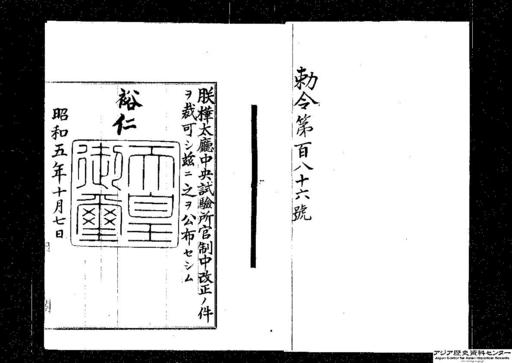 勅令第百八十六號
朕樺太廳中央試驗所官制中改正ノ件
ヲ裁可シ玆ニ之ヲ公布セシム
裕仁
天皇
御璽
昭和五年十月七日
アジア歴史資料センター
Japan Center for Asian Historical Records